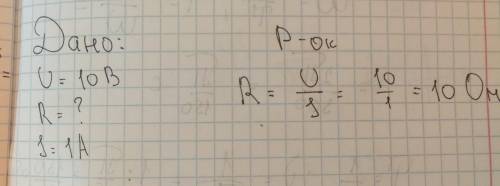 Дано:
U = 10 В
R = ?
I = 1А
Р-ок
R = U/I = 10/1 = 10 Ом